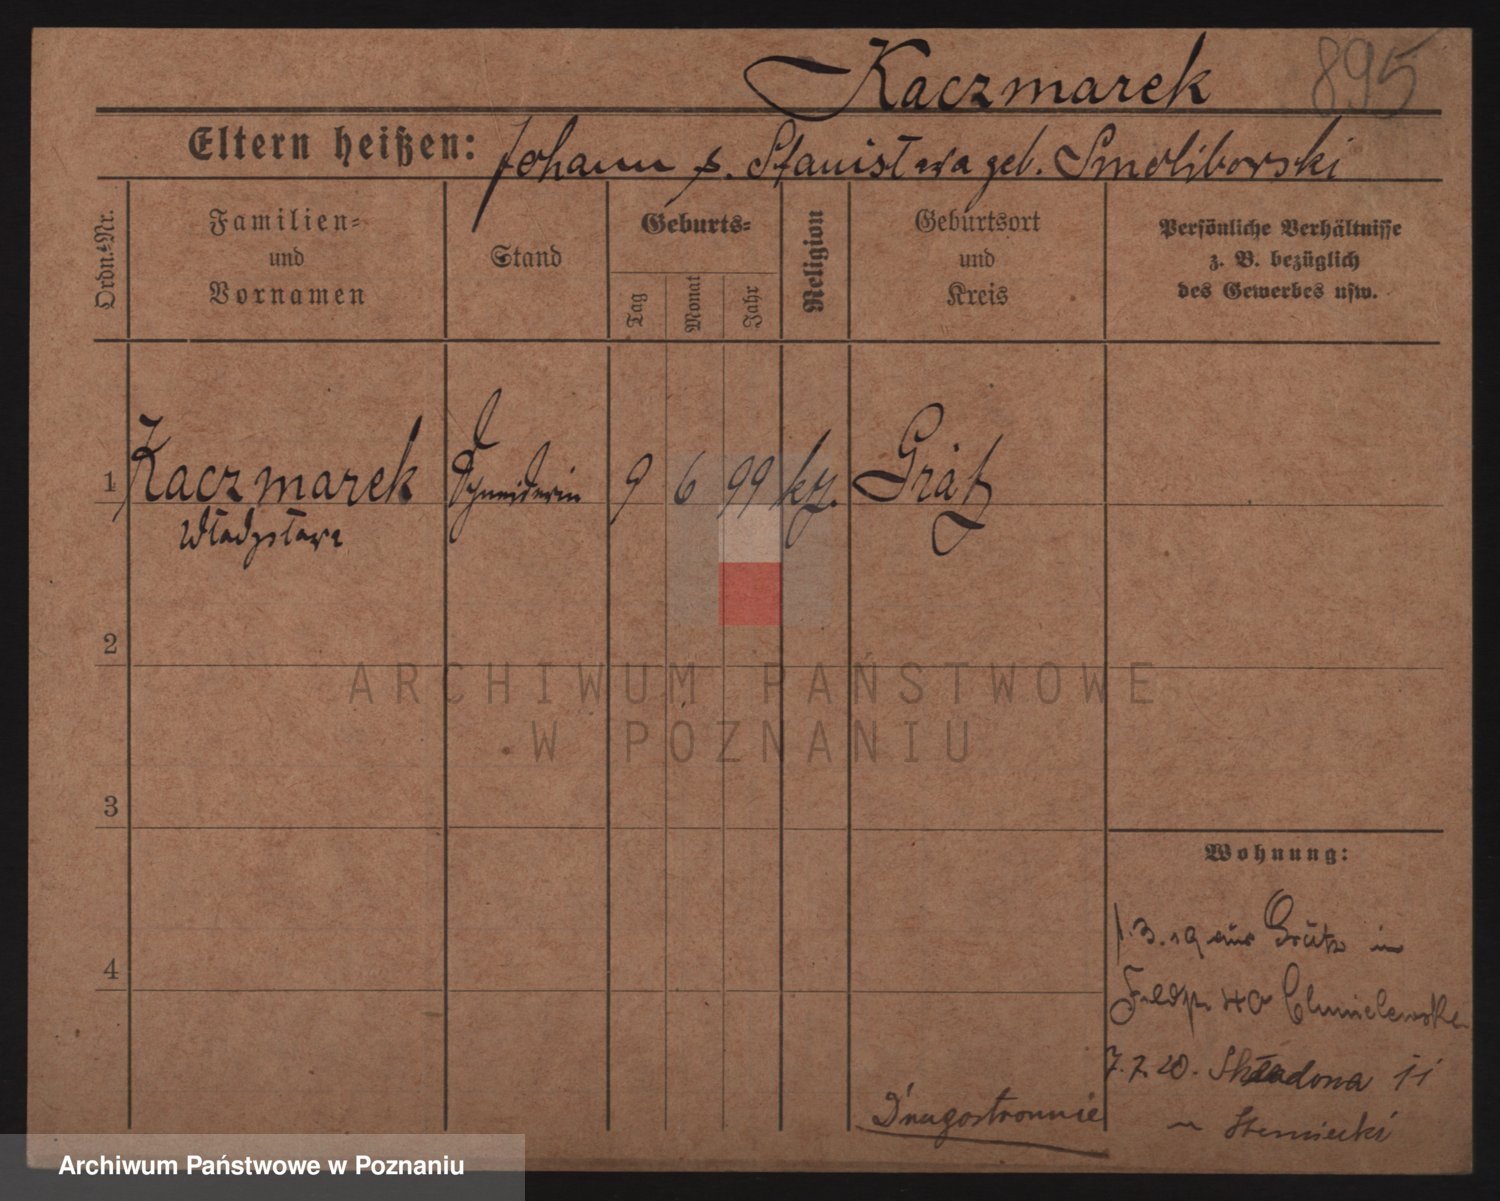 Kaczmarek 895
Eltern heißen: Johann s. Stanisława geb. Smoliborski
Ordn.-Nr.
Familien- und Vornamen
Stand
Geburts-
Tag
Monat
Jahr
Religion
Geburtsort und Kreis
Persönliche Verhältnisse
z. B. bezüglich
des Gewerbes usw.
1 Kaczmarek Schneiderin 9 6 99 kt. Grätz
Władysława
2
3
4
Wohnung:
1.3.19 aus Grätz in
Feldstr. 40 Chmielewska
7.7.20. Składowa 11
Drugostronnie
ARCHIWUM PAŃSTWOWE
W POZNANIU
Archiwum Państwowe w Poznaniu